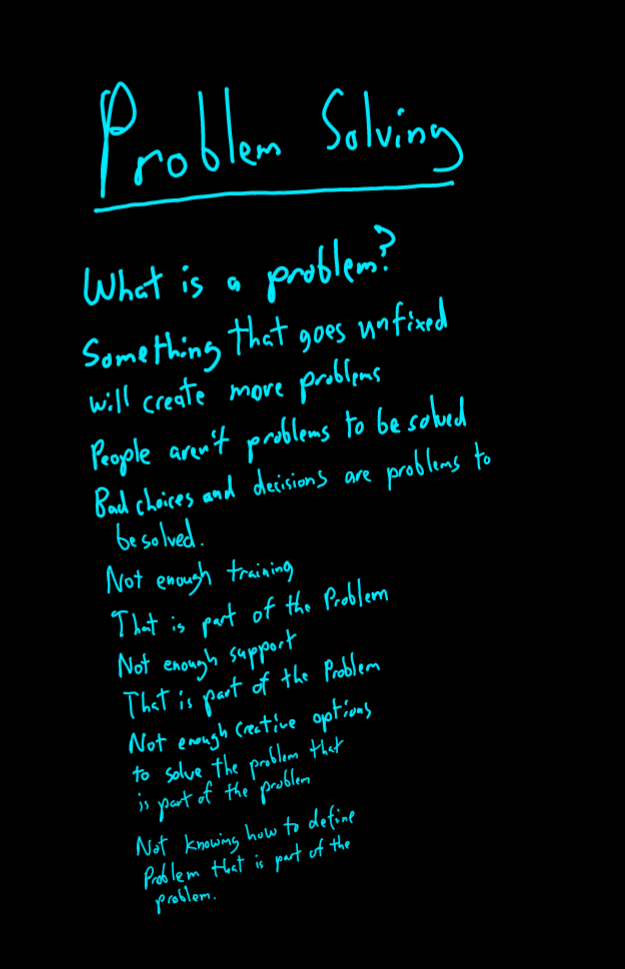 Problem Solving
What is a problem?
Something that goes unfixed
will create more problems
People aren't problems to be solved
Bad choices and decisions are problems to
be solved.
Not enough training
That is part of the Problem
Not enough support
That is part of the Problem
Not enough creative options
to solve the problem that
is part of the problem
Not knowing how to define
Problem that is part of the
problem.